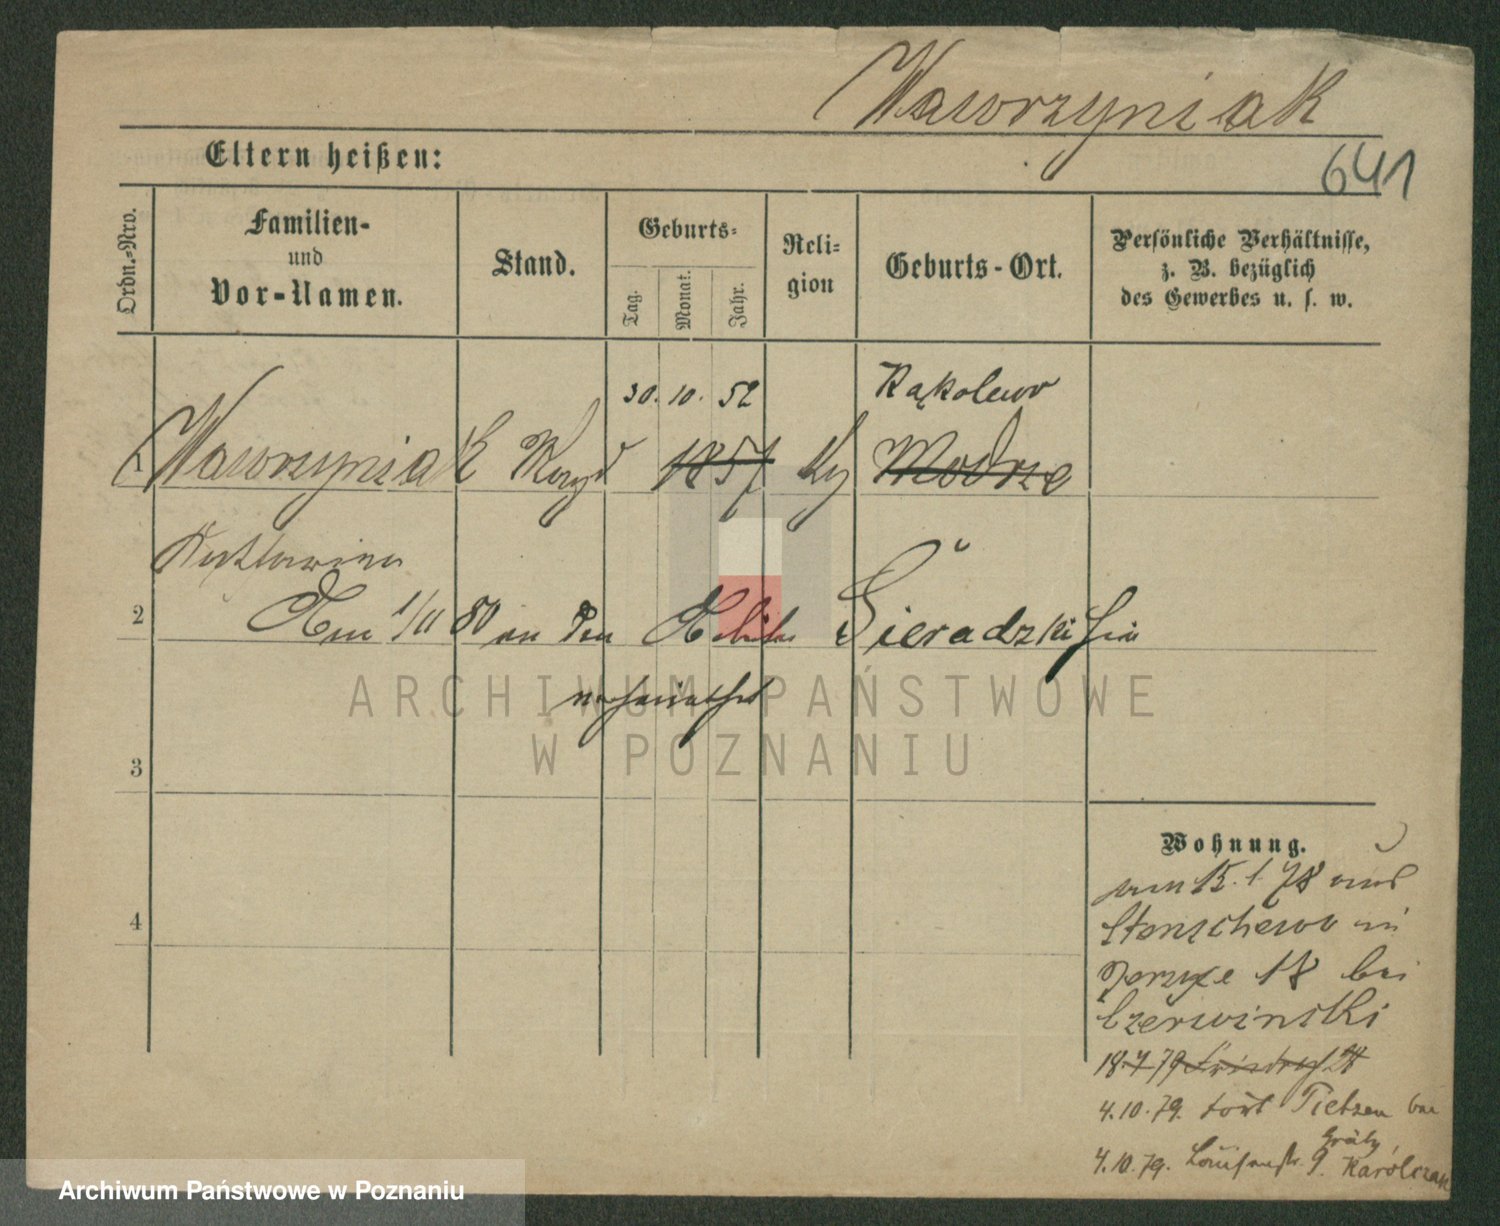 Wawrzyniak
641
Eltern heißen:
Ordn.-Nro.
Familien-
und
Vor-Namen.
Stand.
Geburts-
Tag.
Monat.
Jahr.
Reli-
gion
Geburts-Ort.
Persönliche Verhältnisse,
z. B. bezüglich
des Gewerbes u. s. w.
30. 10. 52 Kąkolewo
1 Wawrzyniak 1857 Modrze
Katharina
2 Am 1/11 80 an den Sieradzki hier
verheirathet
ARCHIWUM PAŃSTWOWE
W POZNANIU
3
4
Wohnung.
am 15. 1. 78 aus
Stenschewo in
Jerzyce 18 bei
Czerwinski
18.7 79
4.10.79. fort Tietzen bei
Grätz
4.10.79. Louisenstr. 9. Karolczak
Archiwum Państwowe w Poznaniu